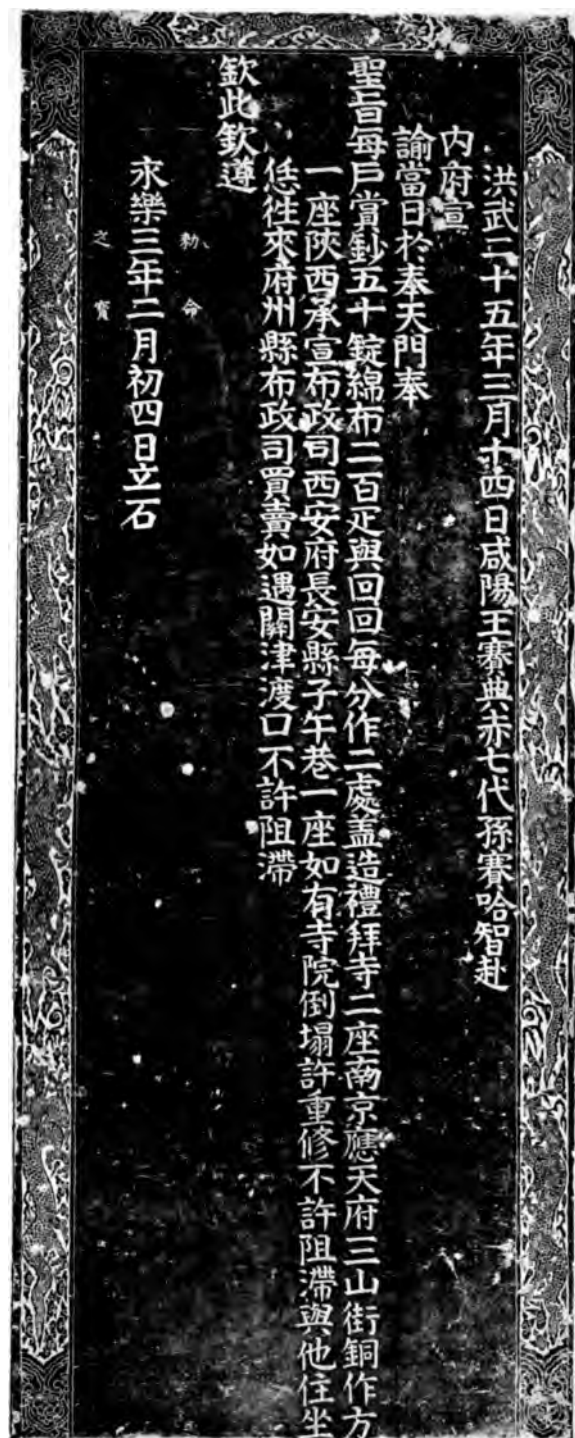 洪武二十五年三月十四日咸陽王賽典赤七代孫賽哈智赴
內府宣
諭當日於奉天門奉
聖旨每戶賞鈔五十錠綿布二百疋與回回每分作二處盖造禮拜寺二座南京應天府三山街銅作方
一座陝西承宣布政司西安府長安縣子午巷一座如有寺院倒塌許重修不許阻滯與他住坐
恁徃來府州縣布政司買賣如遇關津渡口不許阻滯
欽此欽遵
勑命
之寶
永樂三年二月初四日立石